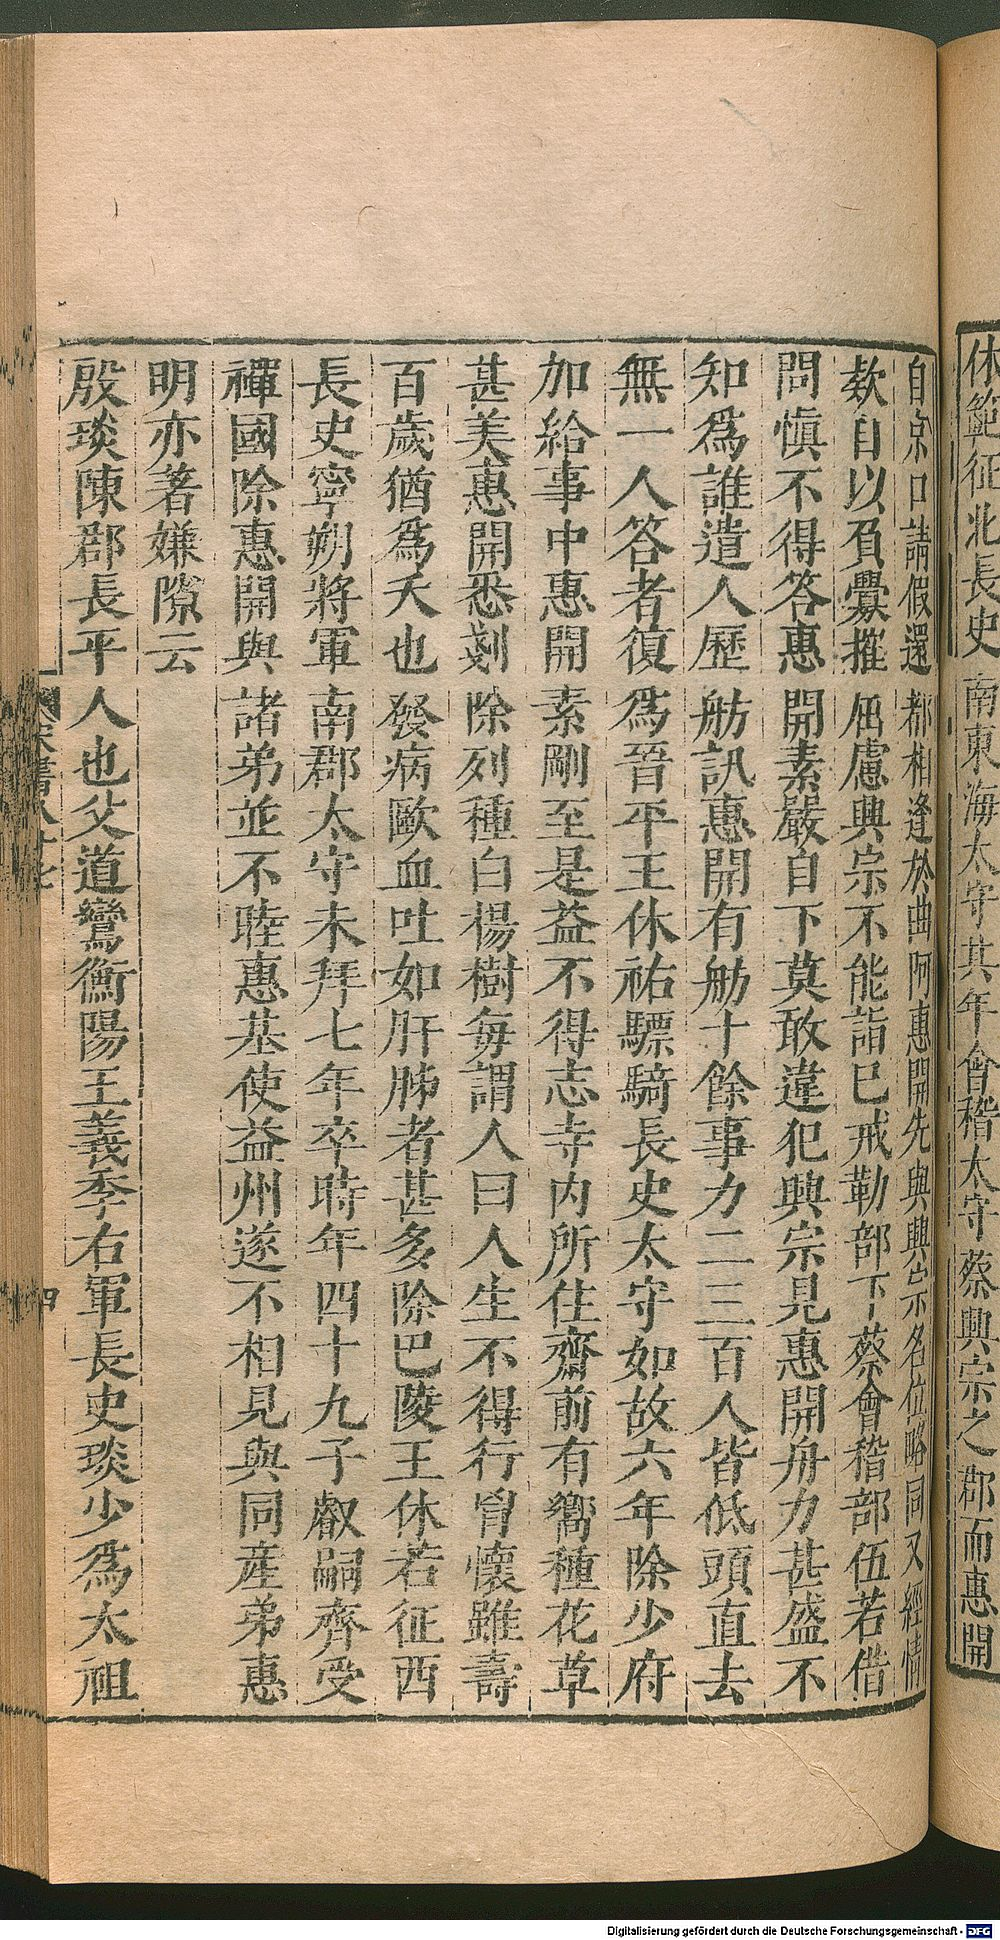 休範征北長史南東海太守其年會稽太守蔡興宗之郡而惠開
自京口請假還都相逢於曲阿惠開先與興宗名位略同又經情
欵自以負釁摧屈慮興宗不能詣已戒勒部下蔡會稽部伍若借
問慎不得答惠開素嚴自下莫敢違犯興宗見惠開舟力甚盛不
知爲誰遣人歷舫訊惠開有舫十餘事力二三百人皆低頭直去
無一人答者復爲晉平王休祐驃騎長史太守如故六年除少府
加給事中惠開素剛至是益不得志寺内所住齋前有嚮種花草
甚美惠開悉剗除列種白楊樹每謂人曰人生不得行胷懷雖壽
百歲猶爲夭也發病歐血吐如肝肺者甚多除巴陵王休若征西
長史寧朔將軍南郡太守未拜七年卒時年四十九子叡嗣齊受
禪國除惠開與諸弟並不睦惠基使益州遂不相見與同産弟惠
明亦著嫌隙云
殷琰陳郡長平人也父道鸞衡陽王義季右軍長史琰少爲太祖
宋書八十七
四
Digitalisierung gefördert durch die Deutsche Forschungsgemeinschaft - DFG